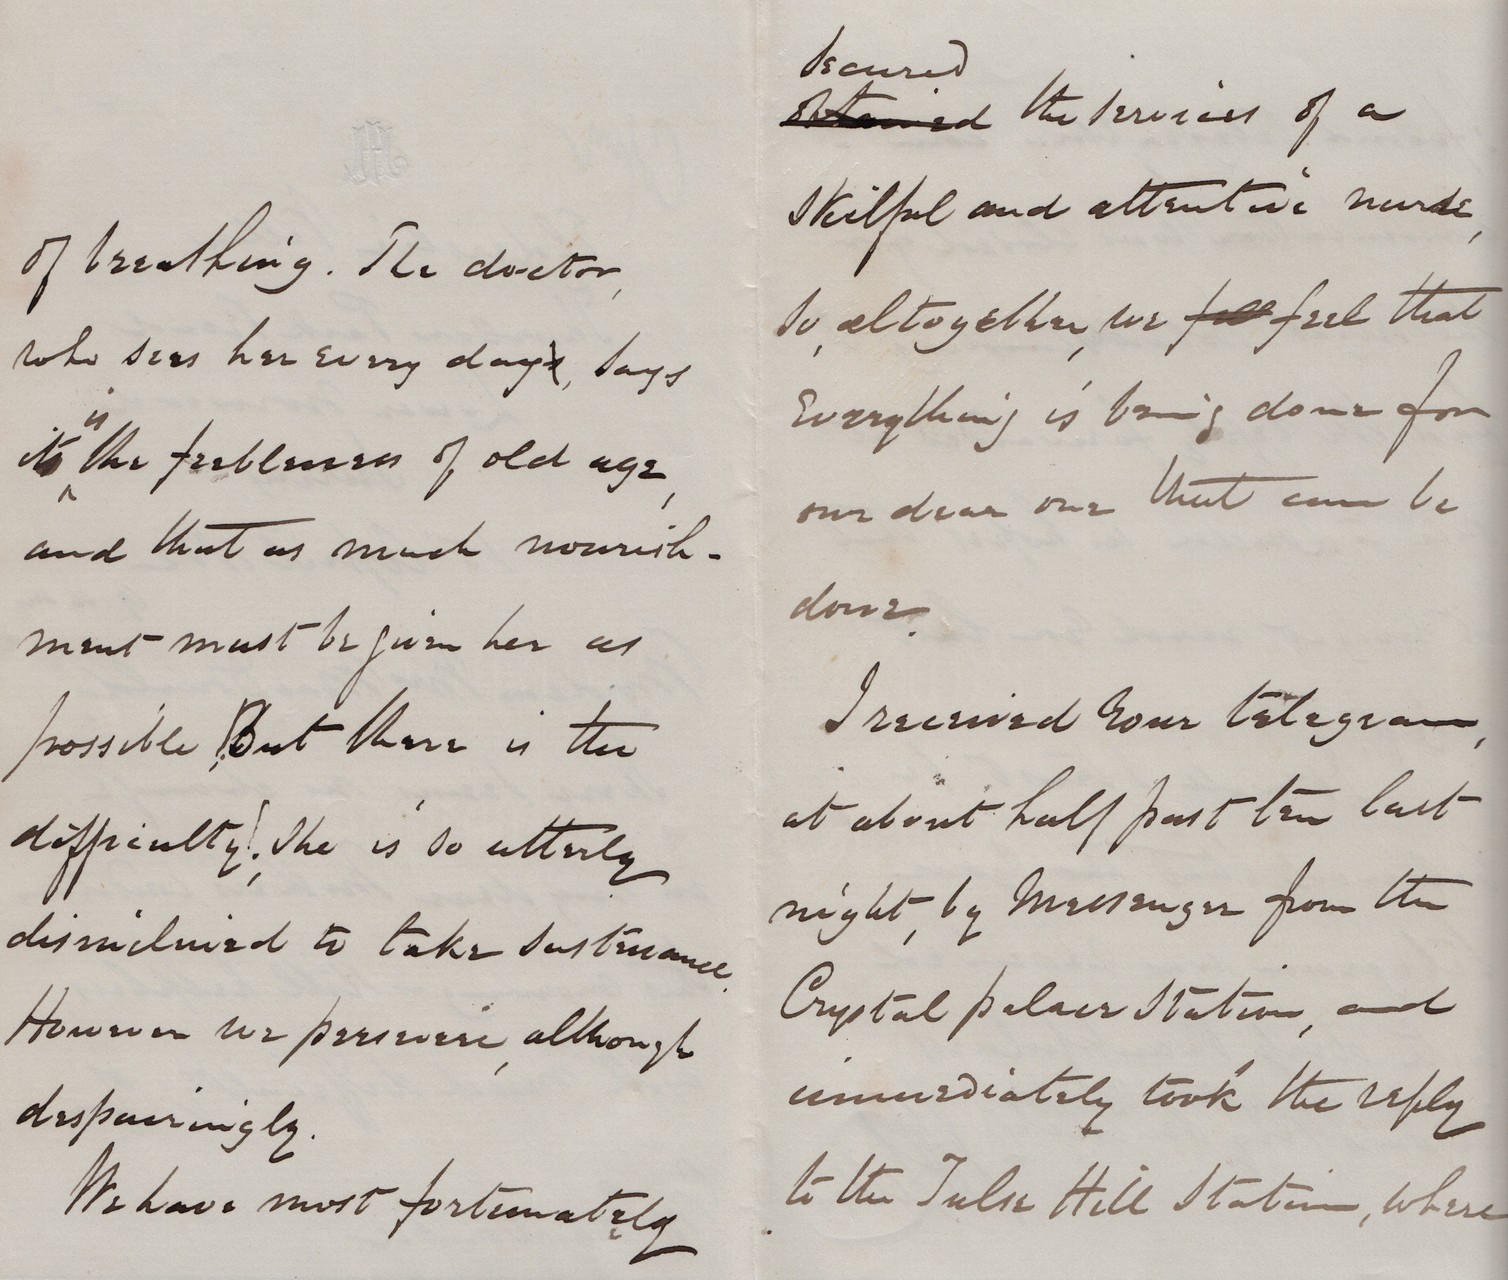 of breathing. The doctor,
who sees her every day, says
it is the feebleness of old age,
and that as much nourish-
ment must be given her as
possible, But there is the
difficulty! She is so utterly
disinclined to take sustenance.
However we persevere, although
despairingly.
We have most fortunately
secured
obtained the services of a
skilful and attentive nurse,
so, altogether, we feel that
Everything is being done for
our dear one that can be
done.
I received your telegram,
at about half past ten last
night, by Messenger from the
Crystal palace Station, and
immediately took the reply
to the Tulse Hill Station, where